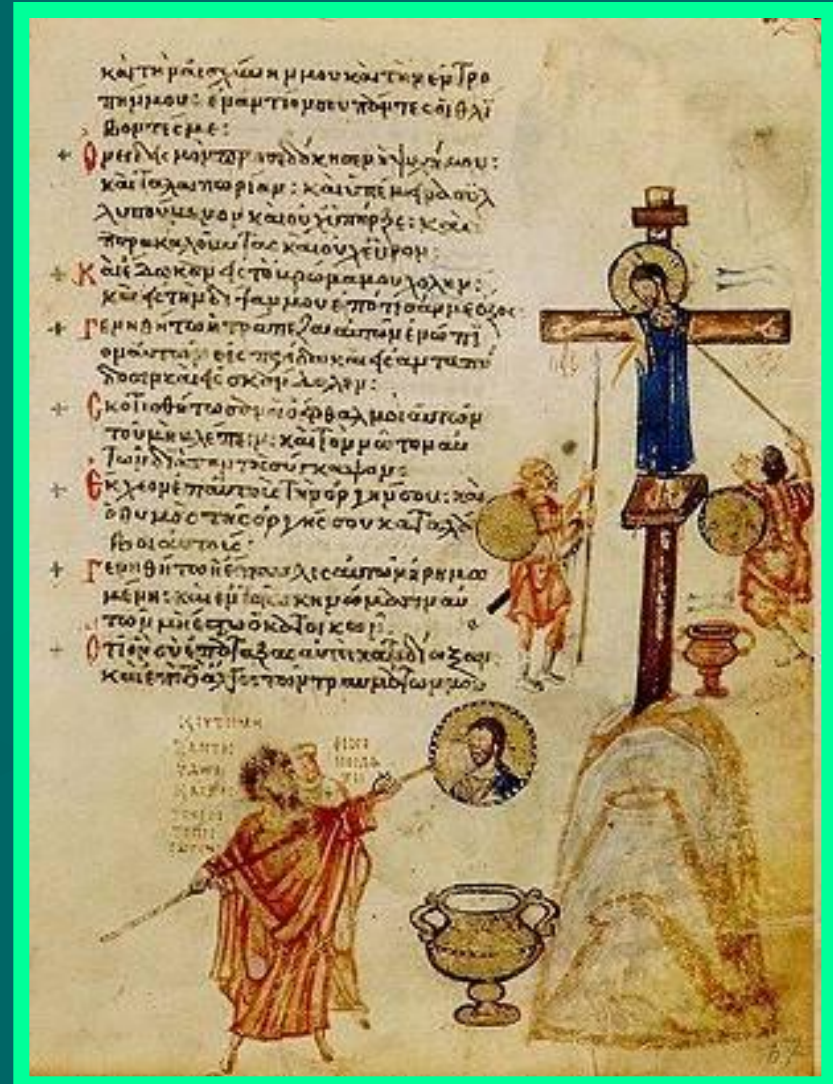 καὶ τὴν αἰσχύνην μου καὶ τὴν ἐντρο
πήν μου: ἐναντίον σου πάντες οἱ θλί
βοντές με:
Ὀνειδισμὸν προσεδόκησεν ἡ ψυχή μου:
καὶ ταλαιπωρίαν: καὶ ὑπέμεινα συλ
λυπούμενον καὶ οὐχ ὑπῆρξε: καὶ
παρακαλοῦντας καὶ οὐχ εὗρον:
Καὶ ἔδωκαν εἰς τὸ βρῶμά μου χολήν:
καὶ εἰς τὴν δίψαν μου ἐπότισάν με ὄξος
Γενηθήτω ἡ τράπεζα αὐτῶν ἐνώπι
ον αὐτῶν εἰς παγίδα καὶ εἰς ἀνταπό
δοσιν καὶ εἰς σκάνδαλον:
Σκοτισθήτωσαν οἱ ὀφθαλμοὶ αὐτῶν
τοῦ μὴ βλέπειν: καὶ τὸν νῶτον αὐ
τῶν διὰ παντὸς σύγκαμψον:
Ἔκχεον ἐπ αὐτοὺς τὴν ὀργήν σου: καὶ
ὁ θυμὸς τῆς ὀργῆς σου καταλά
βοι αὐτούς:
Γενηθήτω ἡ ἔπαυλις αὐτῶν ἠρημω
μένη: καὶ ἐν τοῖς σκηνώμασιν αὐ
τῶν μὴ ἔστω ὁ κατοικῶν
Ὅτι ὃν σὺ ἐπάταξας αὐτοὶ κατεδίωξαν:
καὶ ἐπὶ τὸ ἄλγος τῶν τραυμάτων μου
67